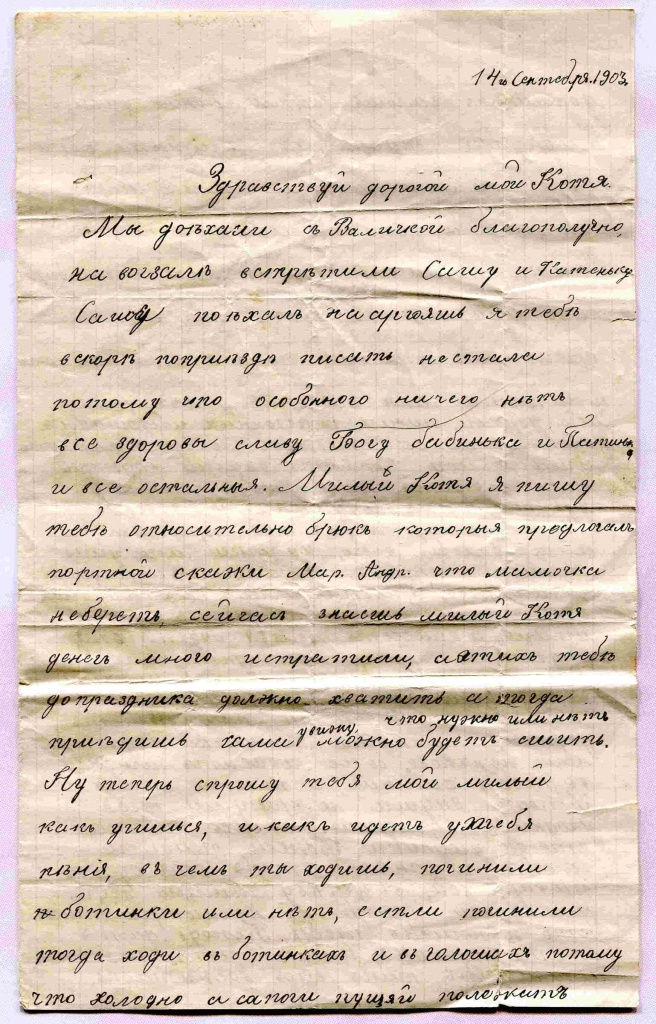 14го Сентября. 1903.
Здравствуй дорогой мой Котя.
Мы доѣхали съ Валичкой благополучно,
на вогзалѣ встрѣтили Сашу и Катеньку
Саша поѣхалъ на аргояшъ я тебѣ
вскорѣ поприѣздѣ писать нестала
потому что особонного ничего нѣтъ
все здоровы славу Богу бабинька и
и все остальныя. Милый Котя я пишу
тебѣ относительно брюкъ которыя предлогалъ
портной скажи Мар. Андр. что мамочка
неберетъ, сейчасъ знаешь милый Котя
денегъ много истратили, а этихъ тебѣ
до праздника должно хватить а тогда
что нужно или нѣтъ
приѣдишь сама увижу, можно будетъ сшить.
Ну теперь спрошу тебя мой милый
какъ учишься, и какъ идетъ у тебя
пѣнія, въ чемъ ты ходишь, починили
ботинки или нѣтъ, если починили
тогда ходи въ ботинкахъ и въ голошахъ потому
что холодно а сапоги пущяй полежатъ